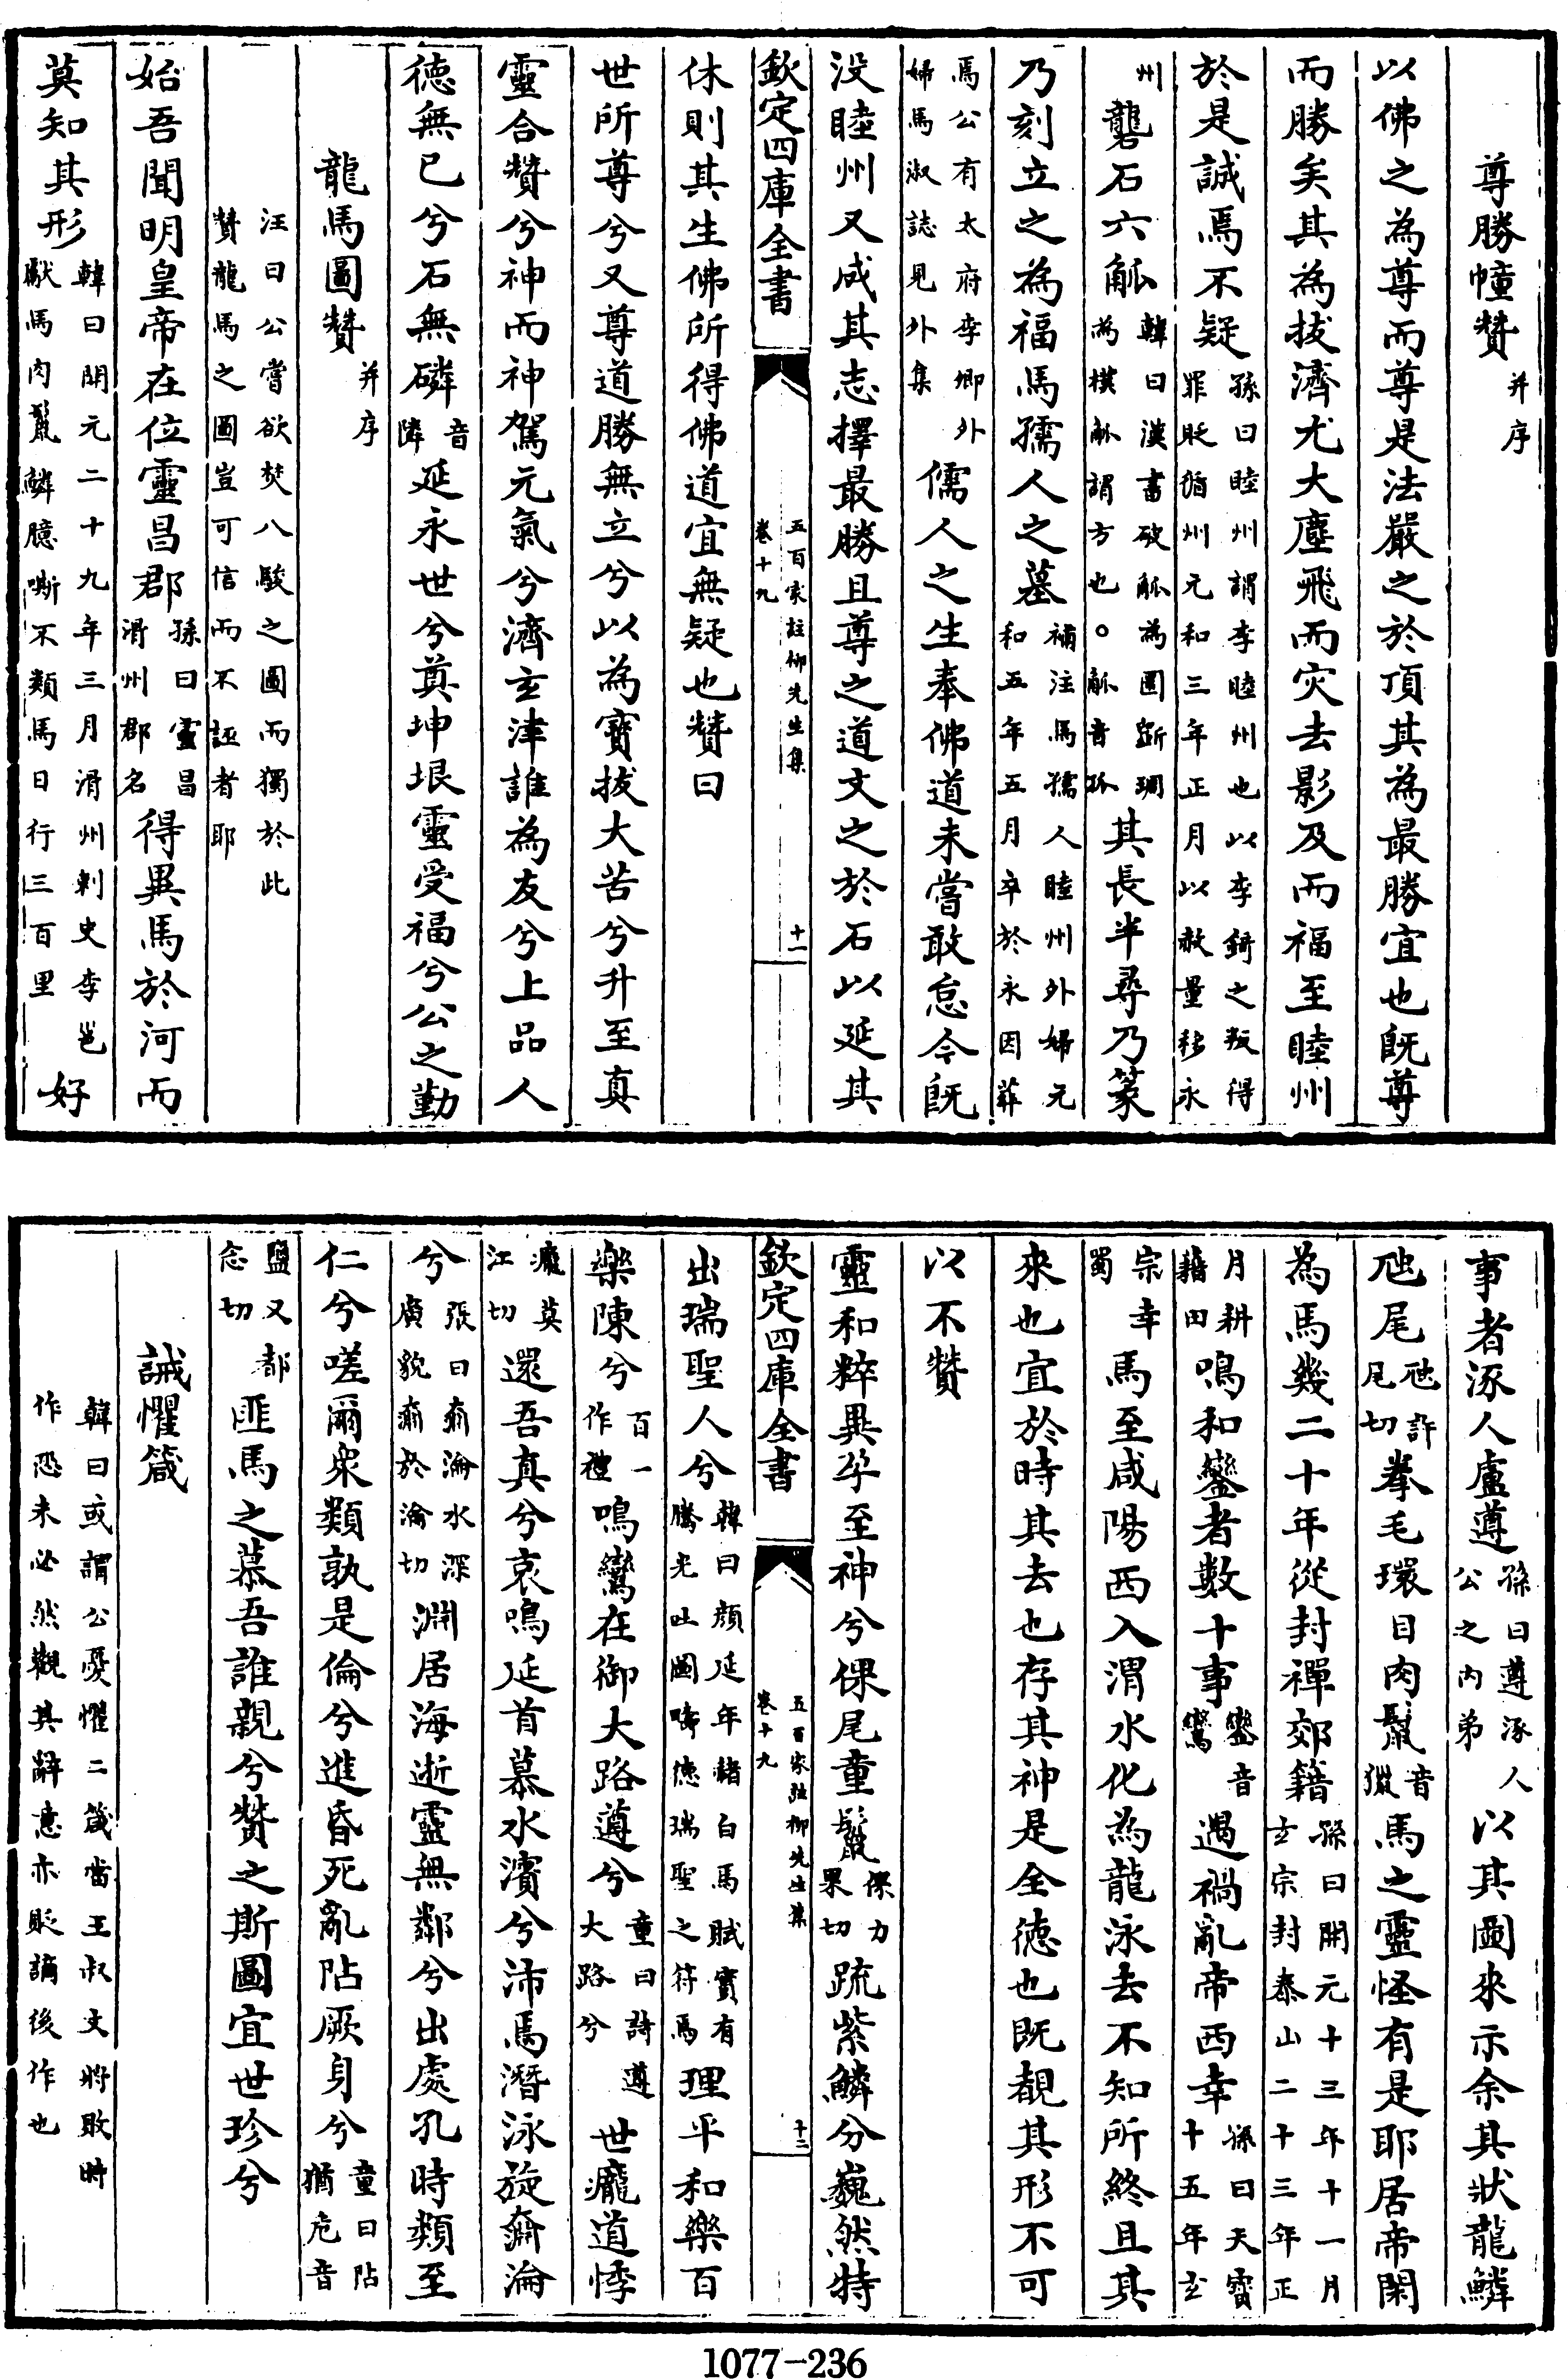 尊勝幢贊并序
以佛之為尊而尊是法嚴之於頂其為最勝宜也既尊
而勝矣其為拔濟尤大塵飛而灾去影及而福至睦州
於是誠焉不疑孫曰睦州謂李睦州也以李錡之叛得罪貶循州元和三年正月以赦量移永
州礱石六觚韓曰漢書破觚為圜斲琱為樸觚謂方也○觚音孤其長半尋乃篆
乃刻立之為福馬孺人之墓補注馬孺人睦州外婦元和五年五月卒於永因葬
焉公有太府李卿外婦馬淑誌見外集儒人之生奉佛道未嘗敢怠今既
没睦州又成其志擇最勝且尊之道文之於石以延其
欽定四庫全書 五百家註柳先生集卷十九 十一
休則其生佛所得佛道宜無疑也贊曰
世所尊兮又尊道勝無立兮以為寶拔大苦兮升至真
靈合贊兮神而神駕元氣兮濟玄津誰為友兮上品人
德無已兮石無磷音隣延永世兮奠坤垠靈受福兮公之勤
龍馬圖贊并序
汪曰公嘗欲焚八駿之圖而獨於此贊龍馬之圖豈可信而不誣者耶
始吾聞明皇帝在位靈昌郡孫曰靈昌滑州郡名得異馬於河而
莫知其形韓曰開元二十九年三月滑州刺史李邕獻馬肉鬣鱗臆嘶不類馬日行三百里好
事者涿人盧遵孫曰遵涿人公之内弟以其圖來示余其狀龍鱗
虺尾虺許尾切拳毛環目肉鬣音獵馬之靈怪有是耶居帝閑
為馬幾二十年從封禪郊籍孫曰開元十三年十一月玄宗封泰山二十三年正
月耕籍田鳴和鑾者數十事鑾音鸞遇禍亂帝西幸孫曰天寶十五年玄
宗幸蜀馬至咸陽西入渭水化為龍泳去不知所終且其
來也宜於時其去也存其神是全德也既覩其形不可
以不贊
靈和粹異孕至神兮倮尾童鬣倮力果切疏紫鱗分巍然特
欽定四庫全書 五百家註柳先生集卷十九 十二
出瑞聖人兮韓曰顔延年赭白馬賦實有騰光吐圖疇德瑞聖之符焉理平和樂百
樂陳兮百一作禮鳴鸞在御大路遵兮童曰詩遵大路兮世癘道悖
癘莫江切還吾真兮哀鳴延首慕水濱兮沛焉潛泳旋奫淪
兮張曰奫淪水深廣貌奫於淪切淵居海逝靈無鄰兮出處孔時類至
仁兮嗟爾衆類孰是倫兮進昏死亂阽厥身兮童曰阽猶危音
鹽又都念切匪馬之慕吾誰親兮贊之斯圖宜世珍兮
誡懼箴
韓曰或謂公憂懼二箴當王叔文將敗時作恐未必然觀其辭意亦貶謫後作也
1077-236